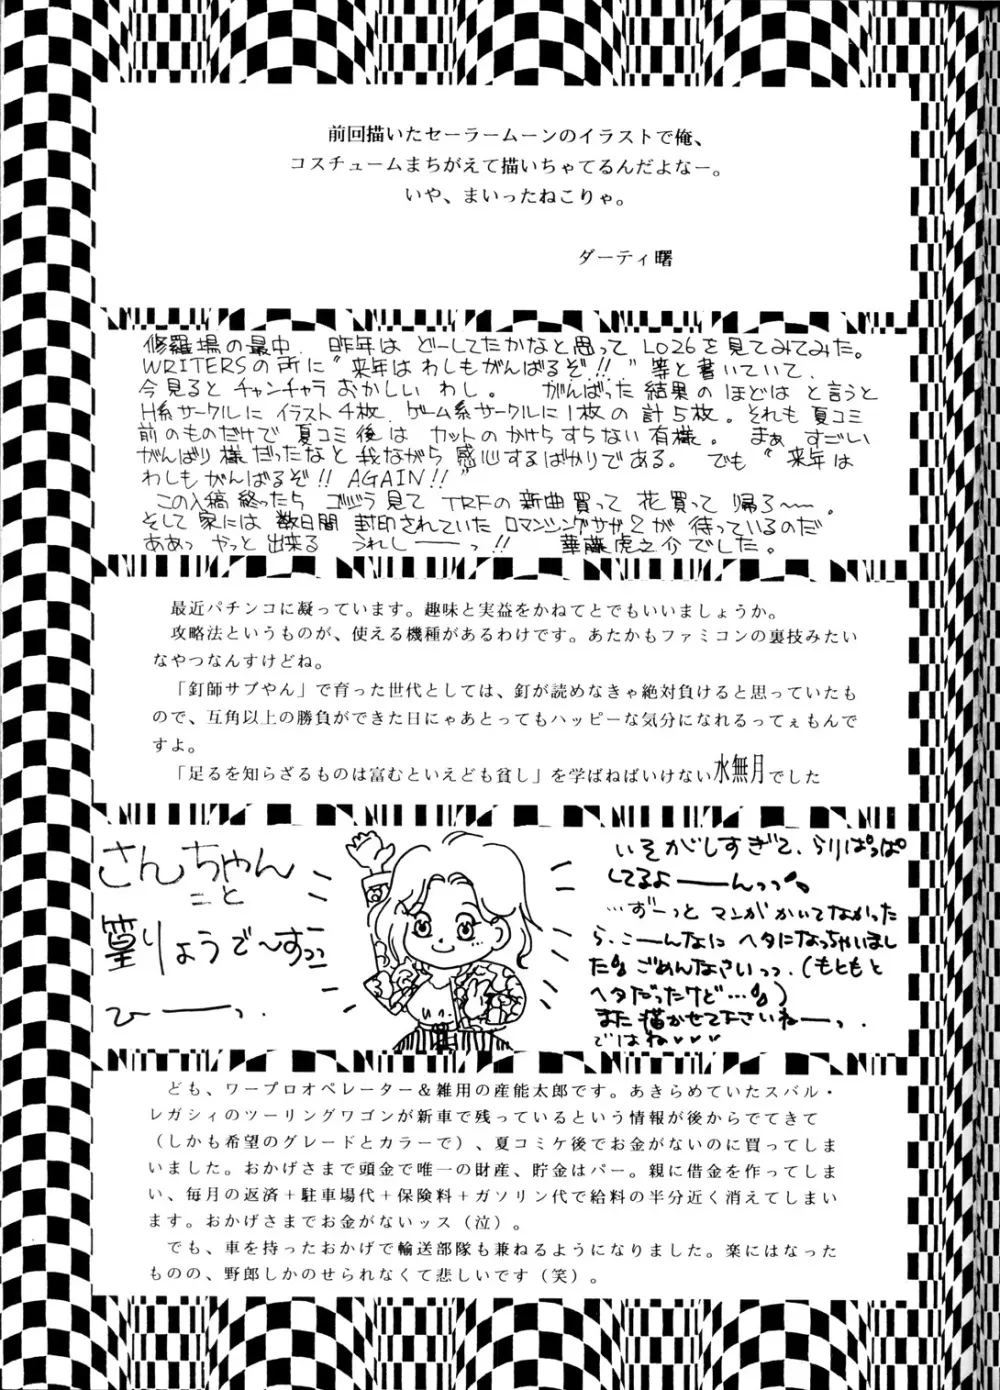 前回描いたセーラームーンのイラストで俺、
コスチュームまちがえて描いちゃてるんだよなー。
いや、まいったねこりゃ。
ダーティ曙
修羅場の最中、昨年はどーしてたかなと思ってLO26を見てみてみた。
WRITERSの所に“来年はわしもがんばるぞ!!”等と書いていて、
今見るとチャンチャラおかしいわし。 がんばった結果のほどはと言うと
H系サークルにイラスト4枚、ゲーム系サークルに1枚の計5枚。それも夏コミ
前のものだけで夏コミ後はカットのかけらすらない有様。まぁすごい
がんばり様だったなと我ながら感心するばかりである。でも“来年は
わしもがんばるぞ!! AGAIN!!”
この入稿終ったらゴジラ見てTRFの新曲買って花買って帰ろ〜。
そして家には数日間封印されていたロマンシングサガ2が待っているのだ
ああっやっと出来るうれしーーっ!! 華藤虎之介でした。
最近パチンコに凝っています。趣味と実益をかねてとでもいいましょうか。
攻略法というものが、使える機種があるわけです。あたかもファミコンの裏技みたい
なやつなんすけどね。
「釘師サブやん」で育った世代としては、釘が読めなきゃ絶対負けると思っていたも
ので、互角以上の勝負ができた日にゃあとってもハッピーな気分になれるってぇもんで
すよ。
「足るを知らざるものは富むといえども貧し」を学ばねばいけない水無月でした
さんちゃん
こと
篁りょうで〜すっっ
ひーーっ.
いそがしすぎて、らりぱっぱ
してるよーーんっっ
…ずーっとマンガかいてなかった
ら、こーんなにヘタになっちゃいまし
た ごめんなさいっっ.(もともと
ヘタだったけど…)
また描かせて下さいねーーっ.
ではね♥♥♥
ども、ワープロオペレーター＆雑用の産能太郎です。あきらめていたスバル・
レガシィのツーリングワゴンが新車で残っているという情報が後からでてきて
（しかも希望のグレードとカラーで）、夏コミケ後でお金がないのに買ってしま
いました。おかげさまで頭金で唯一の財産、貯金はパー。親に借金を作ってしま
い、毎月の返済＋駐車場代＋保険料＋ガソリン代で給料の半分近く消えてしまい
ます。おかげさまでお金がないッス（泣）。
でも、車を持ったおかげで輸送部隊も兼ねるようになりました。楽にはなった
ものの、野郎しかのせられなくて悲しいです（笑）。